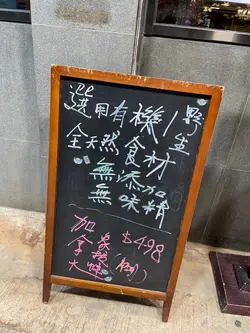 選用有機/野生
全天然食材
無添加
無味精
加拿大
象拔蚌
$498
(例)